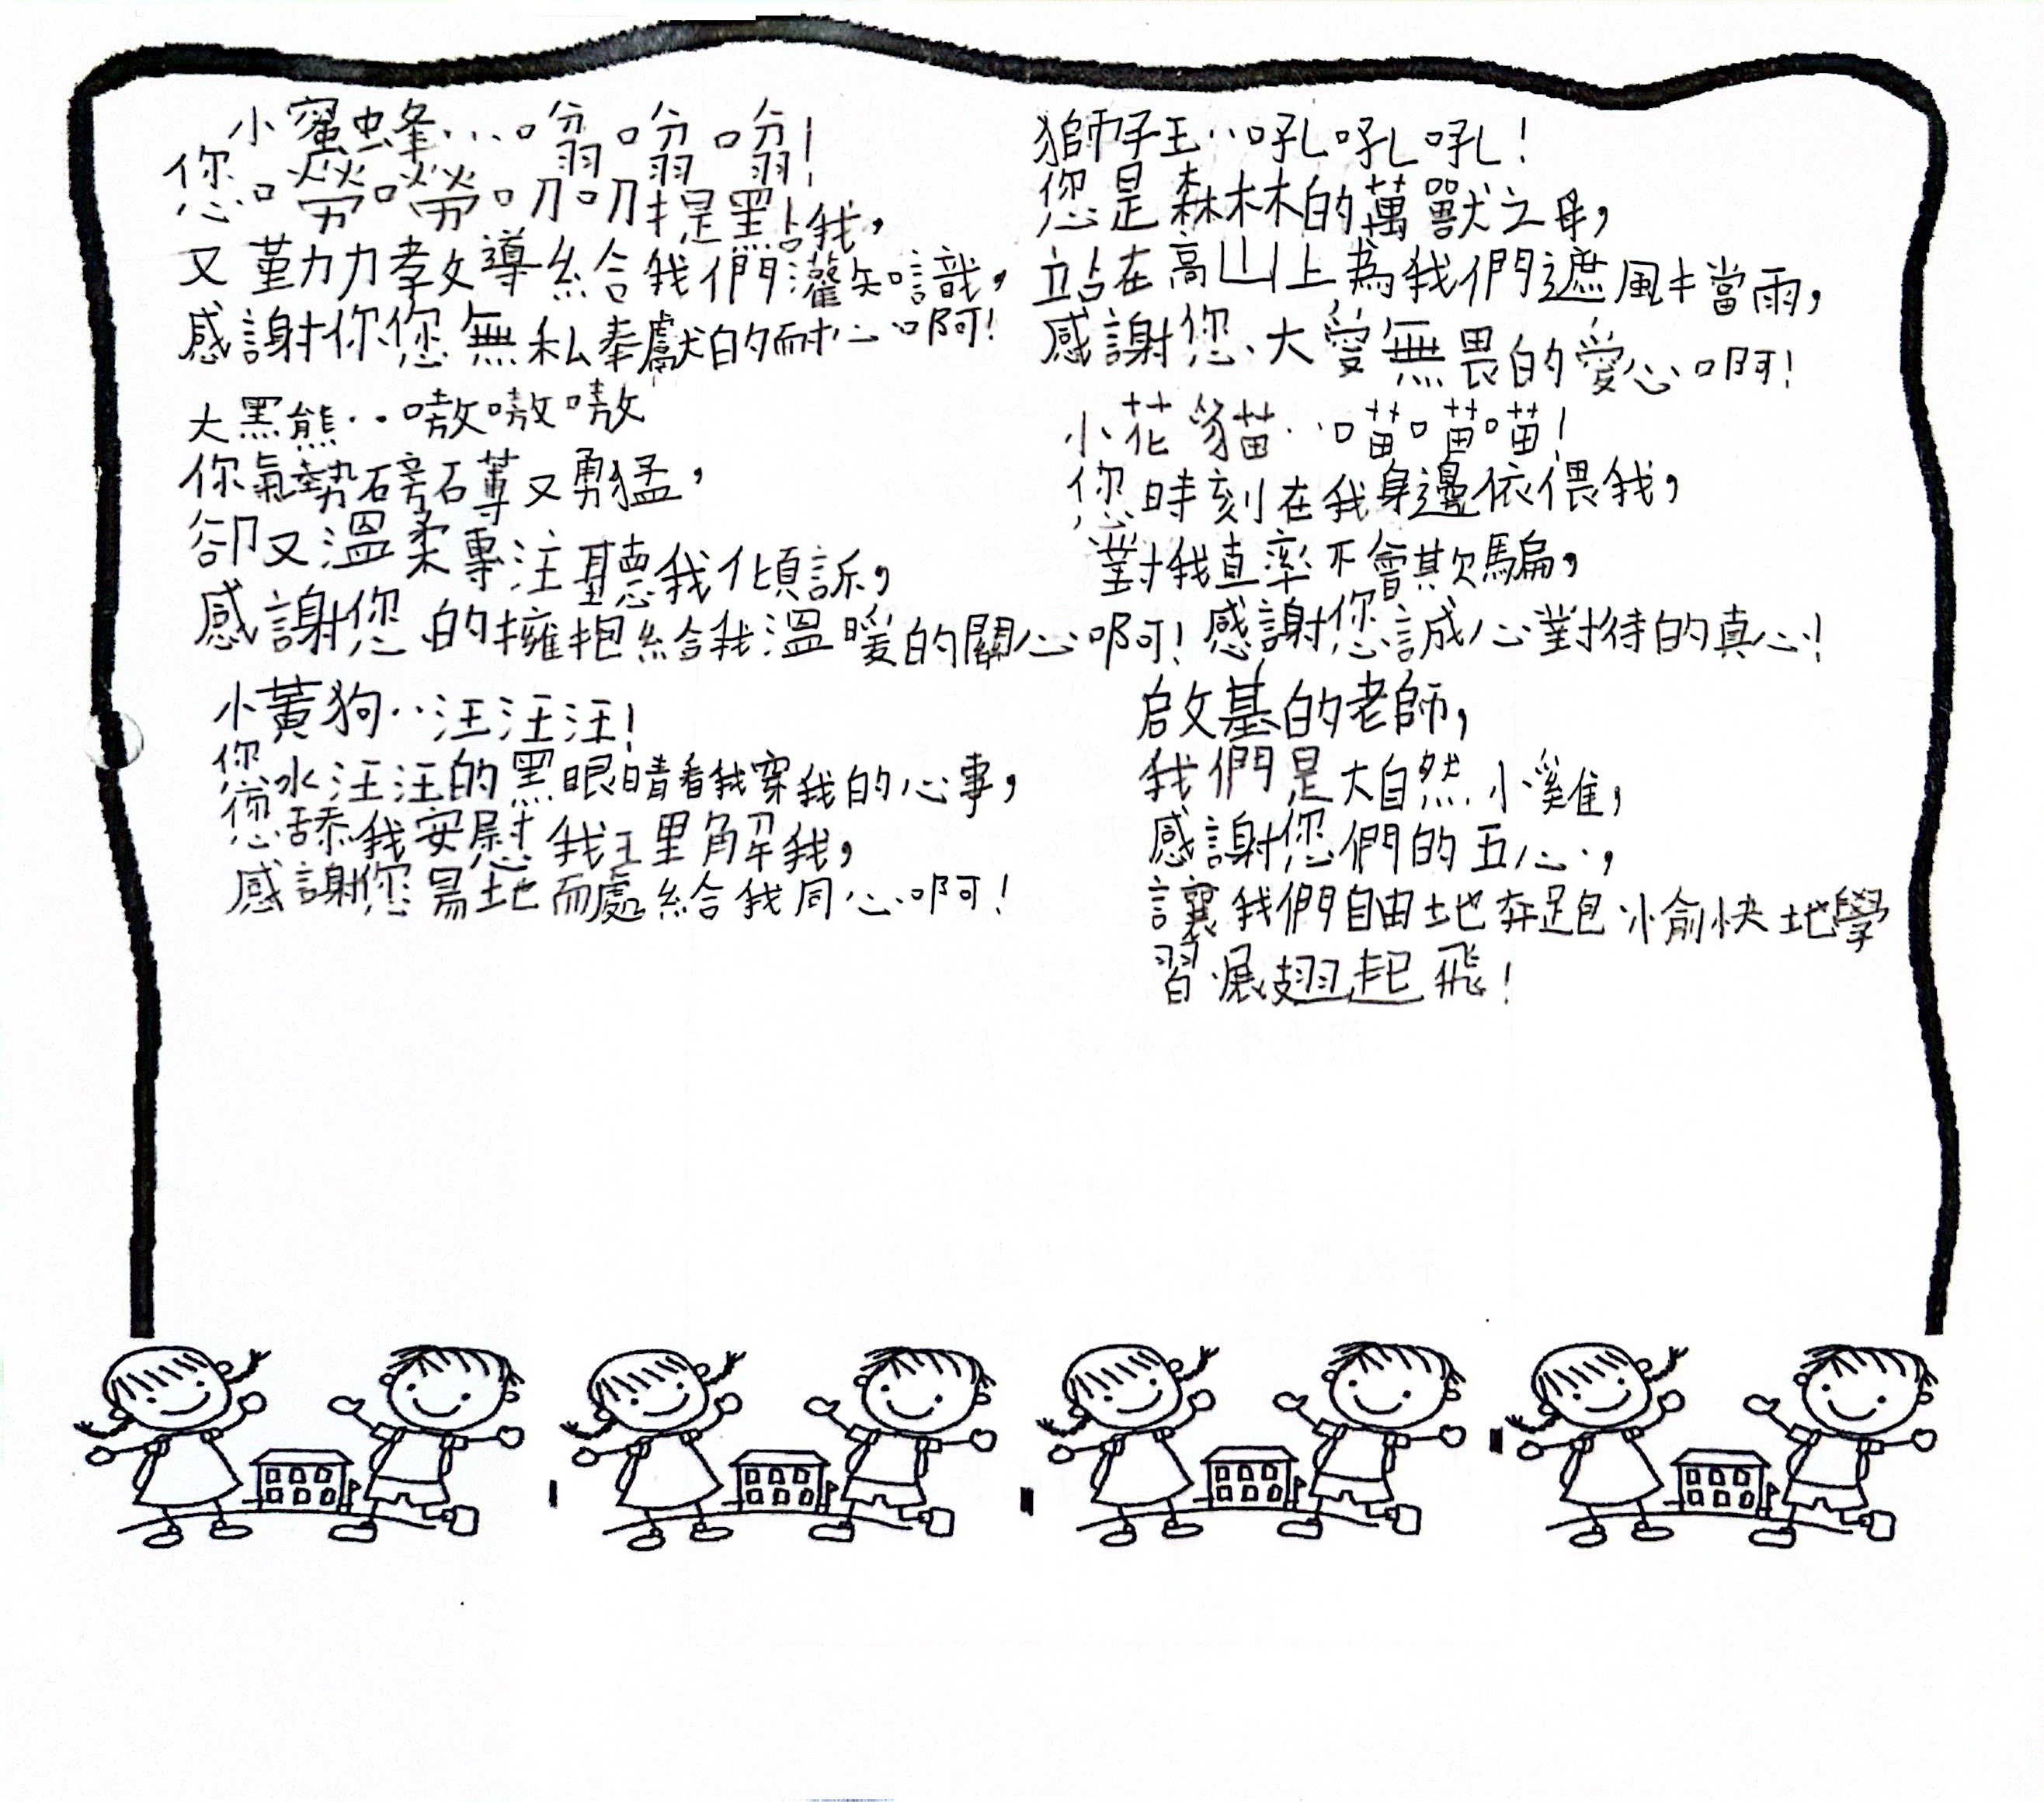 小蜜蜂…嗡嗡嗡!
您嘮嘮叨叨提點我,
又勤力教導給我們灌知識,
感謝你您無私奉獻的耐心啊!
大黑熊..嗷嗷嗷
你氣勢磅礡又勇猛,
卻又溫柔專注聽我傾訴,
感謝您的擁抱給我溫暖的關心啊!
小黃狗..汪汪汪!
您水汪汪的黑眼睛看我穿我的心事,
您舔我安慰我理解我,
感謝您易地而處給我同心啊!
獅子王..吼吼吼!
您是森林的萬獸之母,
站在高山上為我們遮風擋雨,
感謝您大愛無畏的愛心啊!
小花貓..喵喵喵!
您時刻在我身邊依偎我,
對我直率不會欺騙,
感謝您誠心對待的真心!
啟基的老師,
我們是大自然小雞,
感謝您們的五心,
讓我們自由地奔跑愉快地學
習展翅起飛!